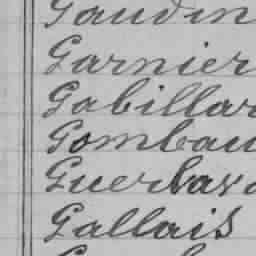 Gaudin
Garnier
Gabillar
Gombau
Gallais